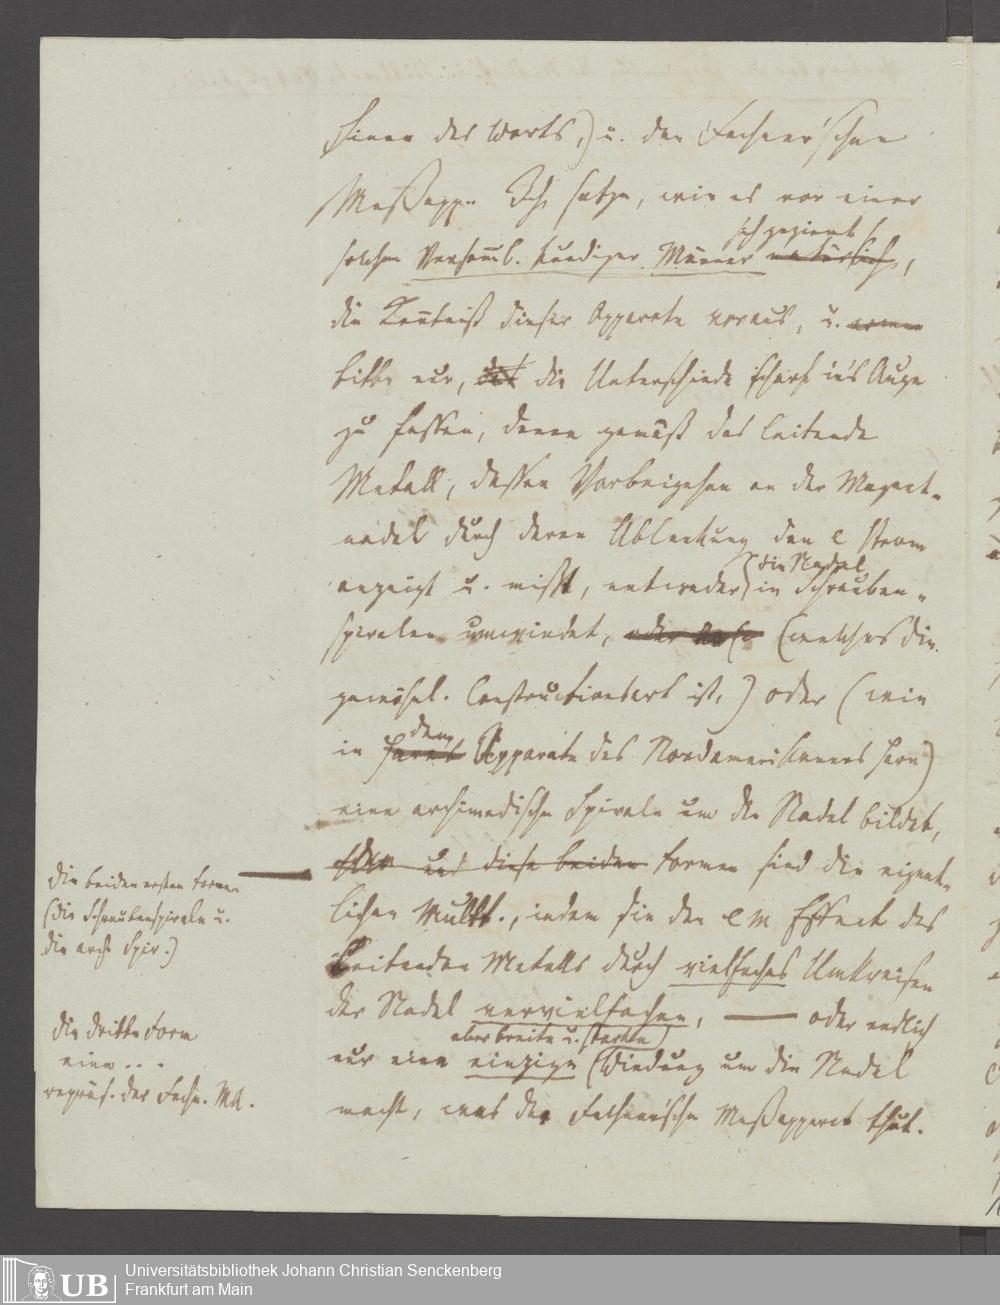 Sinne des Worts,) u. den Fechner'schen
Meßapp. Ich setze, wie es vor einer
sich geziemt
solchen Versamml. kundiger Männer natürlich,
die Kenntniß dieser Apparate voraus, u.
bitte nur, die Unterschiede scharf in's Auge
zu fassen, denen gemäß das leitende
Metall, dessen Vorbeigehen an der Magnet-
nadel durch deren Ablenkung den e Strom
anzeigt u. mißt, entweder die Nadel in Schrauben-
spiralen umwindet, oder (welches die
gewöhnl. Constructionsart ist,) oder (wie
in dem Apparate des Nordamerikaners)
eine archimedische Spirale um die Nadel bildet,
und diese beiden Formen sind die eigent-
lichen Multt., indem sie den e m Effect des
Leitenden Metalls durch vielfaches Umkreisen
der Nadel vervielfachen, — oder endlich
aber breite u. starke)
nur eine einzige (Windung um die Nadel
macht, was der Fechner'sche Meßapparat thut.
die beiden ersten Formen
(die Schraubenspirale u.
die arch. Spir.)
die dritte Form
eine . . .
repräs. der Fechn. MA.
UB
Universitätsbibliothek Johann Christian Senckenberg
Frankfurt am Main